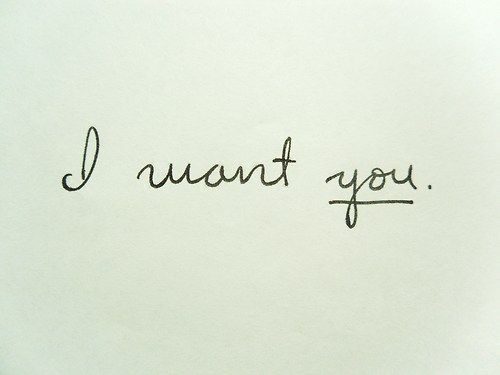 I want you.